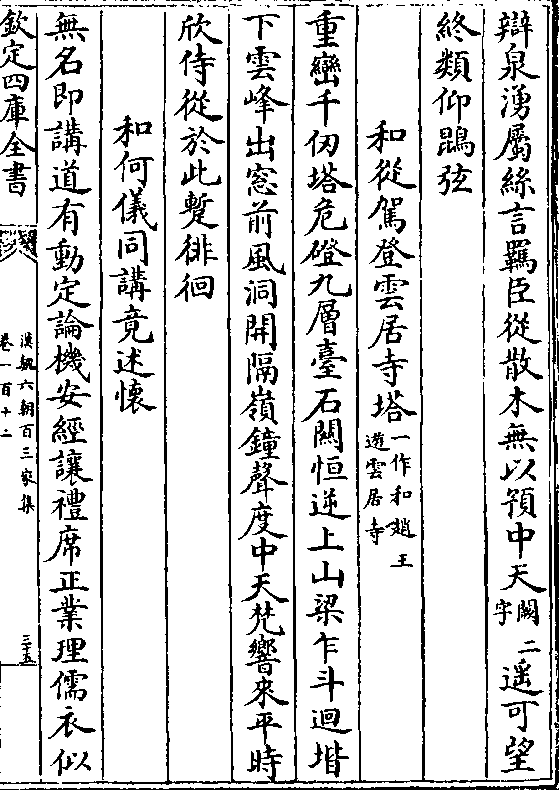 辯泉湧屬絲言羈臣從散木無以預中天闕二字遥可望
終類仰鵾弦
和從駕登雲居寺塔一作和趙王遊雲居寺
重巒千仭塔危磴九層臺石關恒逆上山梁乍斗迴堦
下雲峰出窓前風洞開隔嶺鐘聲度中天梵響來平時
欣侍從於此蹔徘徊
和何儀同講竟述懷
無名即講道有動定論機安經讓禮席正業理儒衣似
欽定四庫全書
漢魏六朝百三家集
卷一百十二
三十五